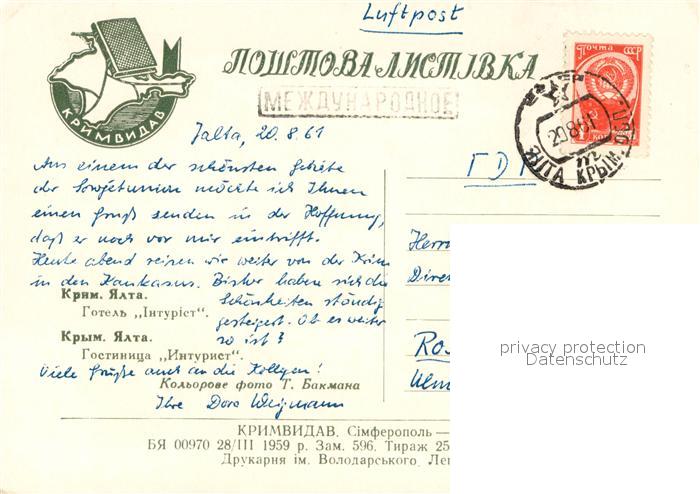 Luftpost
ПОШТОВА ЛИСТІВКА
КРИМВИДАВ
МЕЖДУНАРОДНОЕ
Почта СССР
20861
ЯЛТА КРЫМ
Jalta, 20.8.61
Aus einem der schönsten Gebiete
der Sowjetunion möchte ich Ihnen
einen Gruß senden in der Hoffnung,
daß er noch vor mir eintrifft.
Heute abend reisen wir weiter von der Krim
in den Kaukasus. Bisher haben sich die
Schönheiten ständig
gesteigert. Ob es weiter
so ist?
Viele Grüße auch an die Kollegen!
Ihre Dora
ГДР
Herrn
Крим. Ялта.
Готель „Інтуріст".
Крым. Ялта.
Гостиница „Интурист".
Кольорове фото Т. Бакмана
КРИМВИДАВ. Сімферополь —
БЯ 00970 28/III 1959 р. Зам. 596. Тираж 25
Друкарня ім. Володарського. Лен
privacy protection
Datenschutz